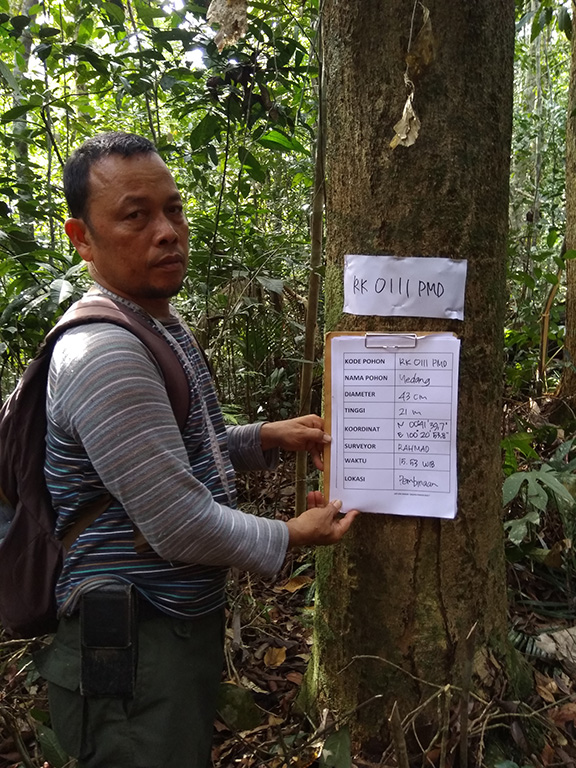 RK 0111 PMD
KODE POHON RK 0111 PMD
NAMA POHON Medang
DIAMETER 43 cm
TINGGI 21 m
KOORDINAT N 00°41' 59,7"
E 100°20' 53,8"
SURVEYOR RAHMAD
WAKTU 15.53 WIB
LOKASI Pembinaan